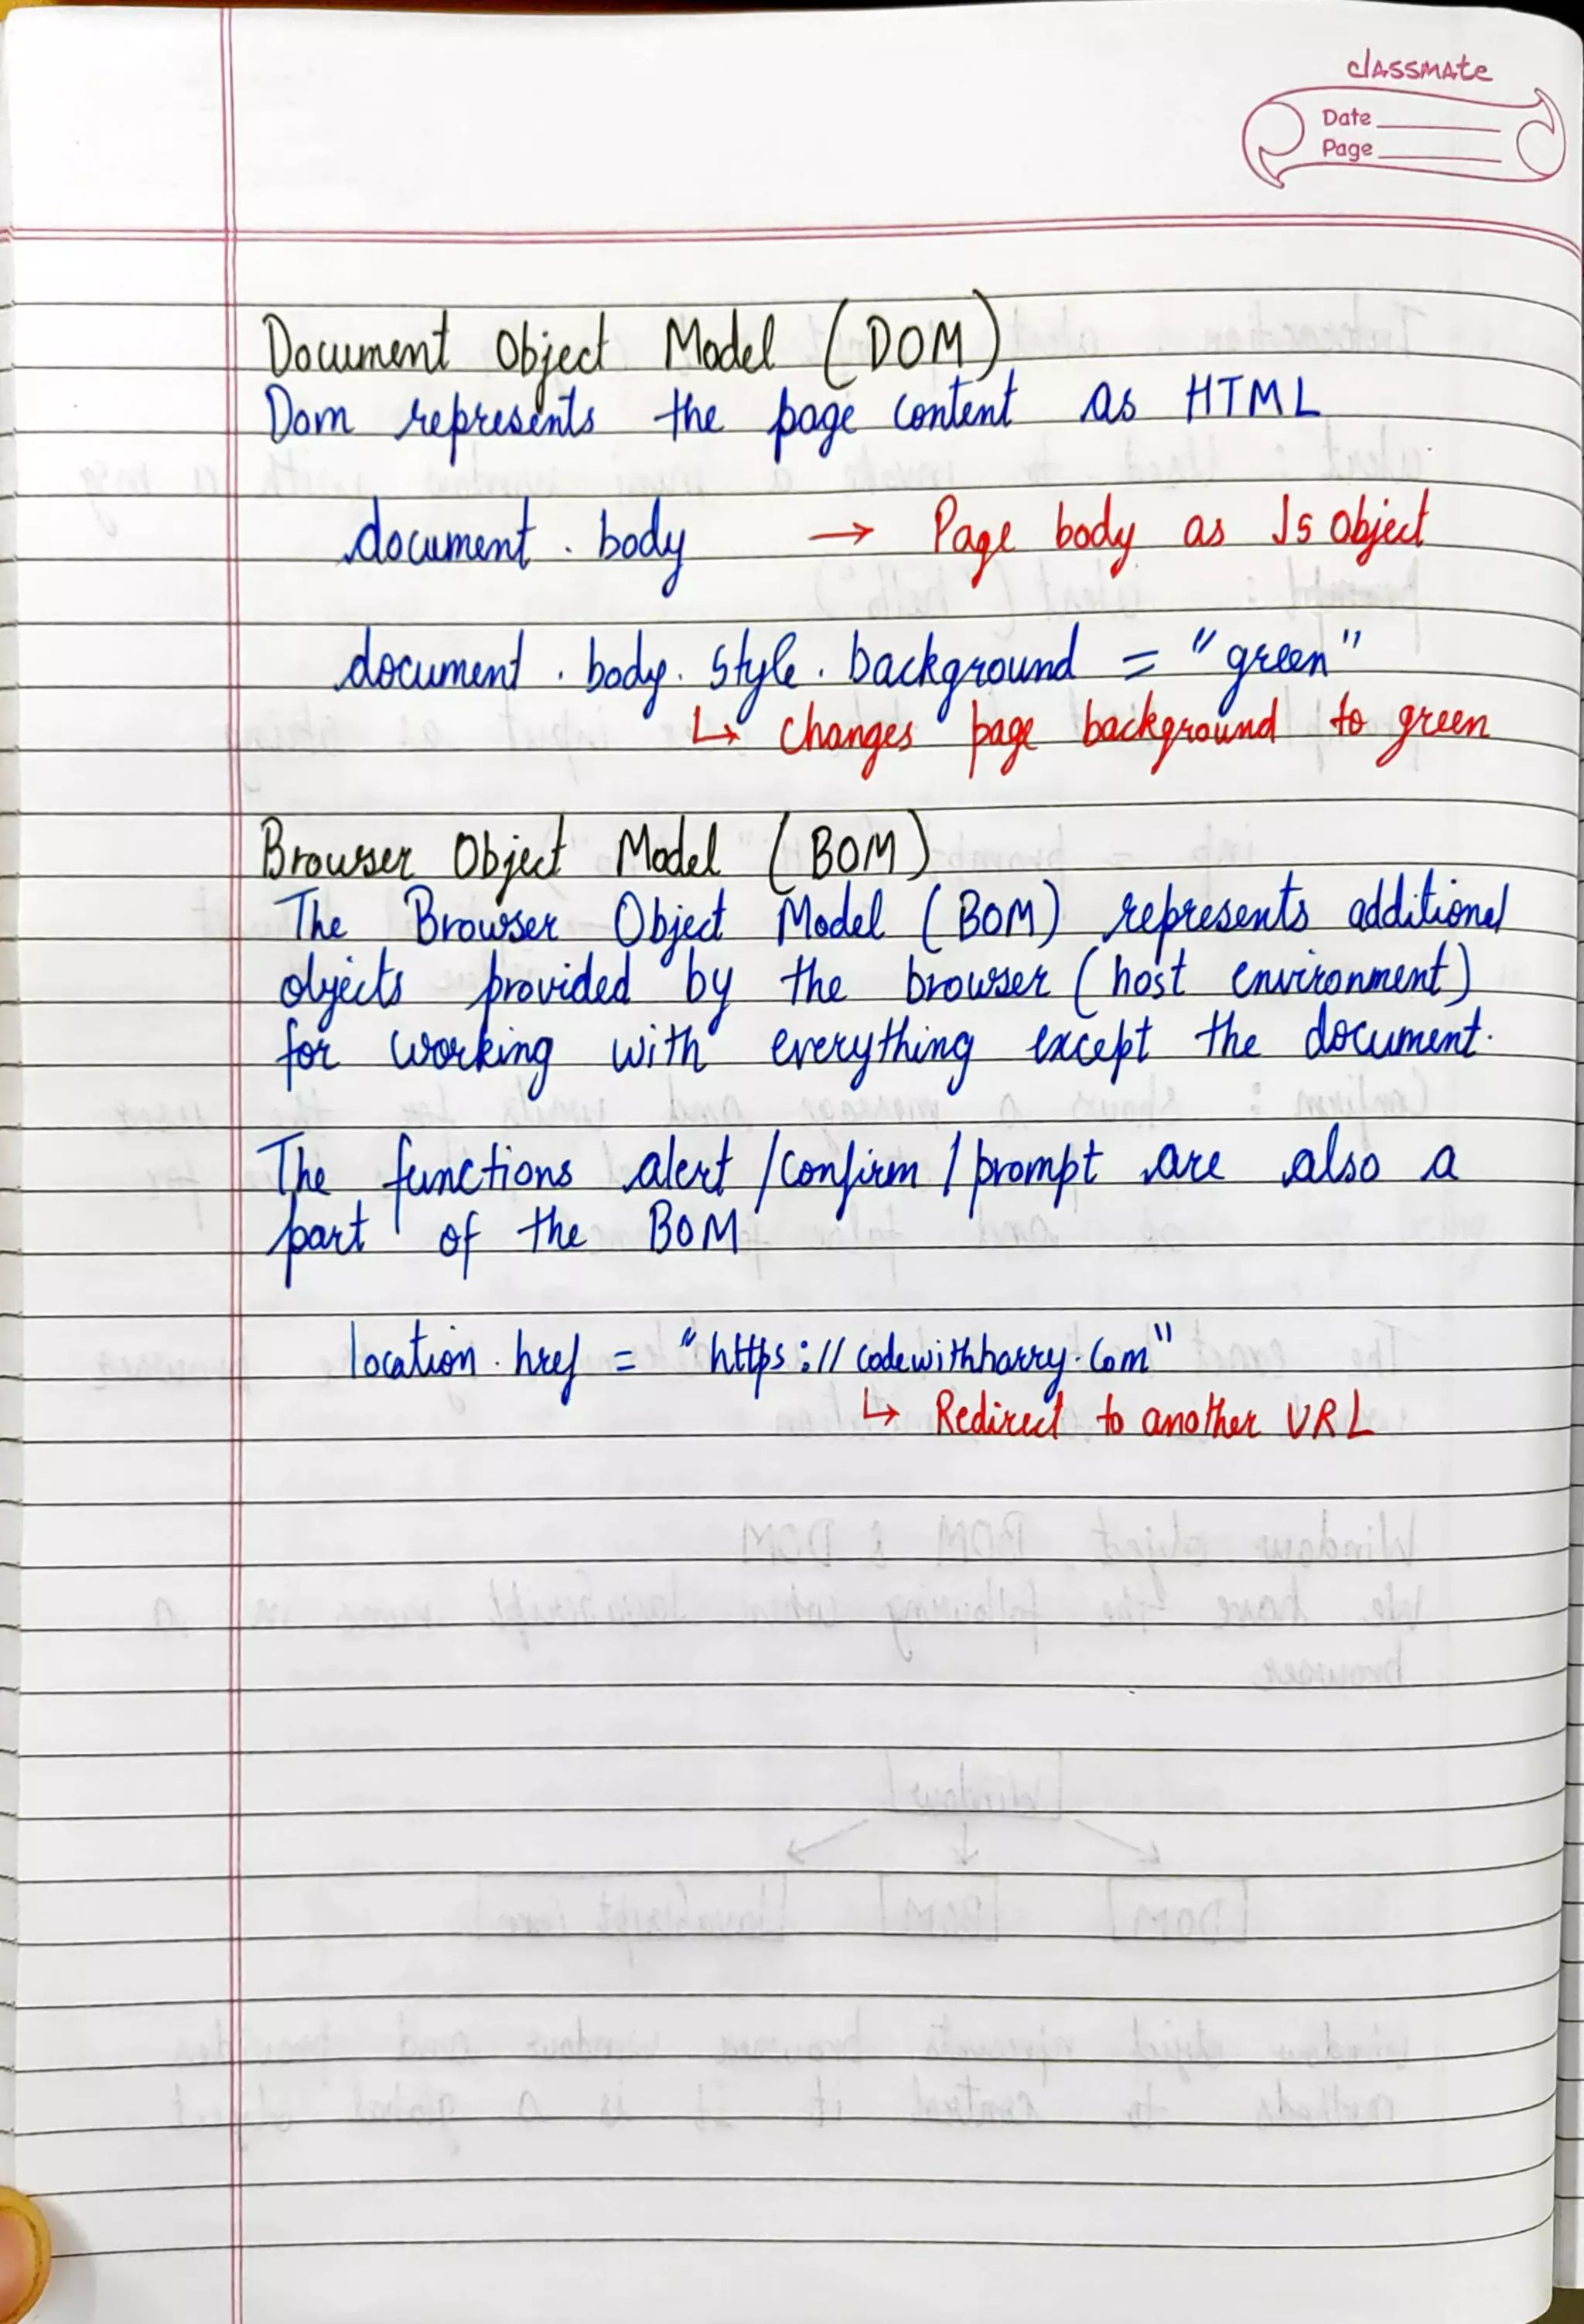 classmate
Date
Page
Document Object Model (DOM)
Dom represents the page content as HTML
document . body → Page body as Js Object
document . body . style . background = "green"
↳ changes page background to green
Browser Object Model (BOM)
The Browser Object Model (BOM) represents additional
objects provided by the browser (host environment)
for working with everything except the document.
The functions alert / confirm / prompt are also a
part of the BOM
location . href = "https://codewithharry.com"
↳ Redirect to another URL